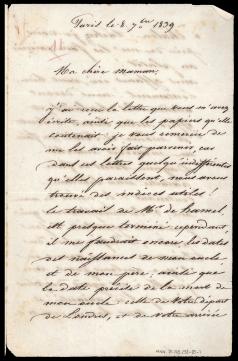 Paris le 8 7bre 1839
Ma chère maman,
J'ai reçu la lettre que vous m'avez
écrite, ainsi que les papiers qu'elle
contenait : je vous remercie de
me les avoir fait parvenir, car
dans ces lettres quelqu'indifférentes
qu'elles paraissent, nous avons
trouvé des indices utiles !
le travail de Mr de hamel
est presque terminé cependant,
il me faudrait encore les dates
des naissances de mon oncle,
et de mon père ; ainsi que
la date précise de la mort de
mon oncle : celle de votre départ
de Londres, et de votre arrivée